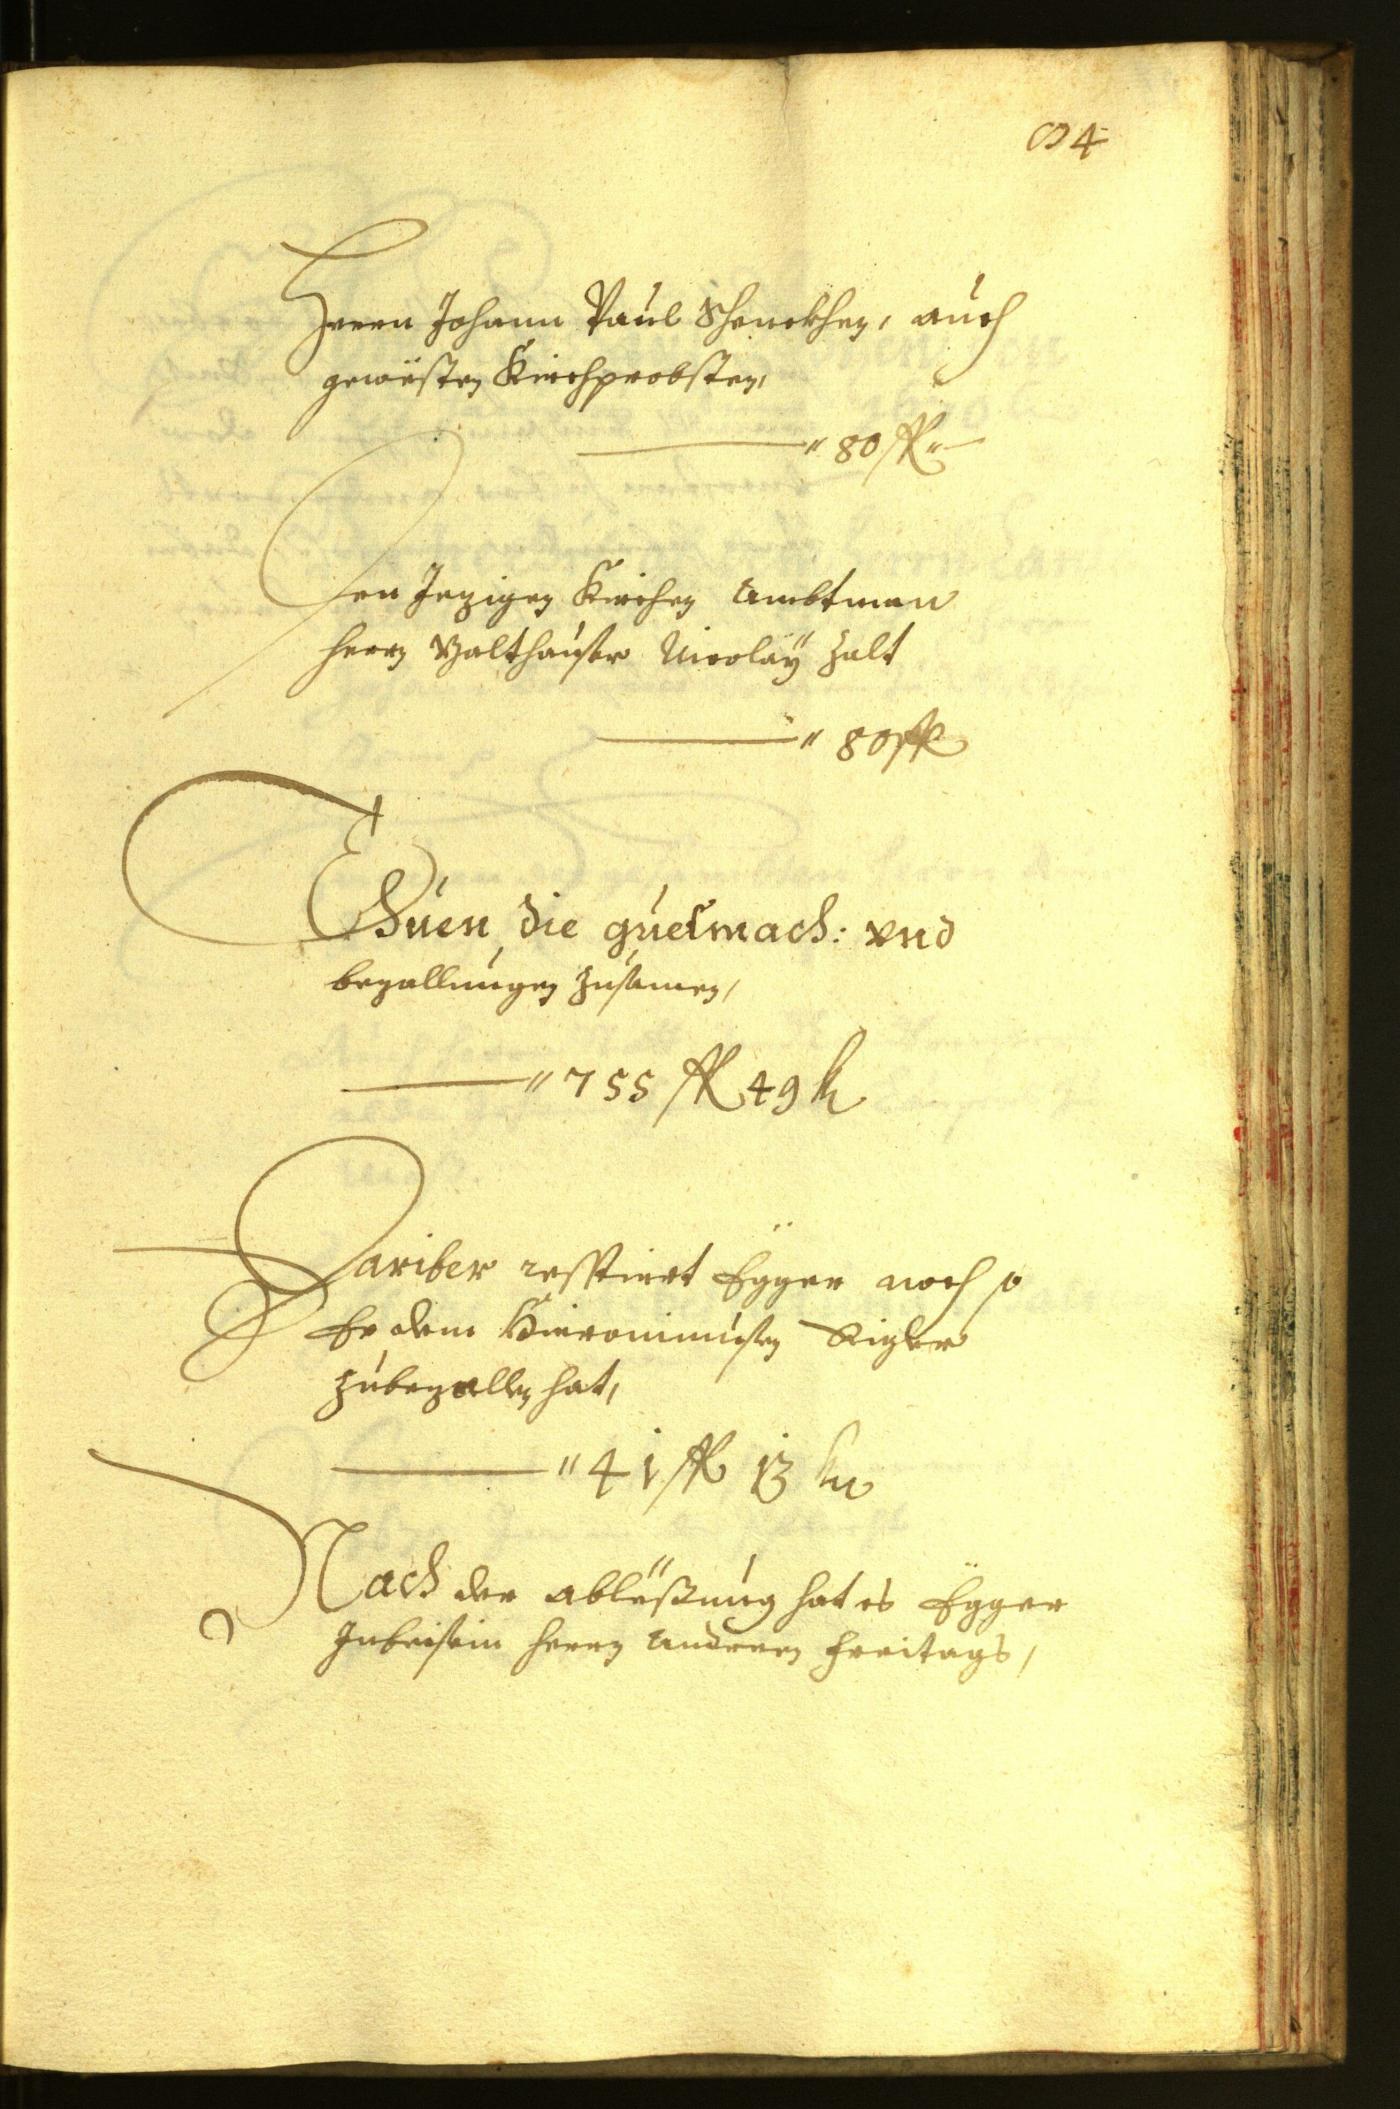 84
Herrn Johann Paul Schenckhen, auch
gewësten Kirchprobsten,
80 fl
Den Jezigen Kirchen Ambtman
herrn Balthauser Nicolaÿ zalt
80 fl
Thuen die guetmach: vnd
bezallungen zusamen,
755 fl 49 k
Dariber resstiert Egger noch so
Er dem Hieronimußen Rigler
zubezallen hat,
41 fl 13 kr
Nach der ableßung hat es Egger
Inbeisein herrn Andreen Freitags,